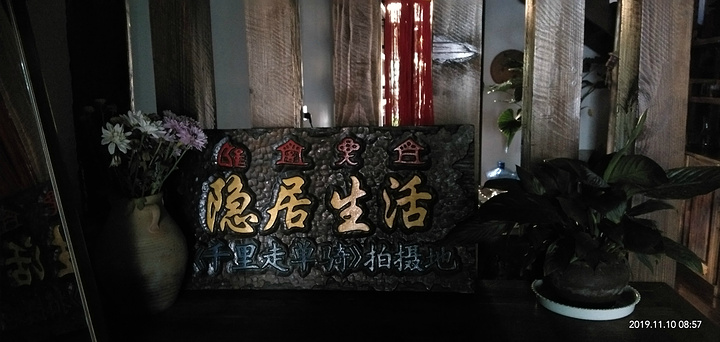 隐居生活
《千里走单骑》拍摄地
2019.11.10 08:57